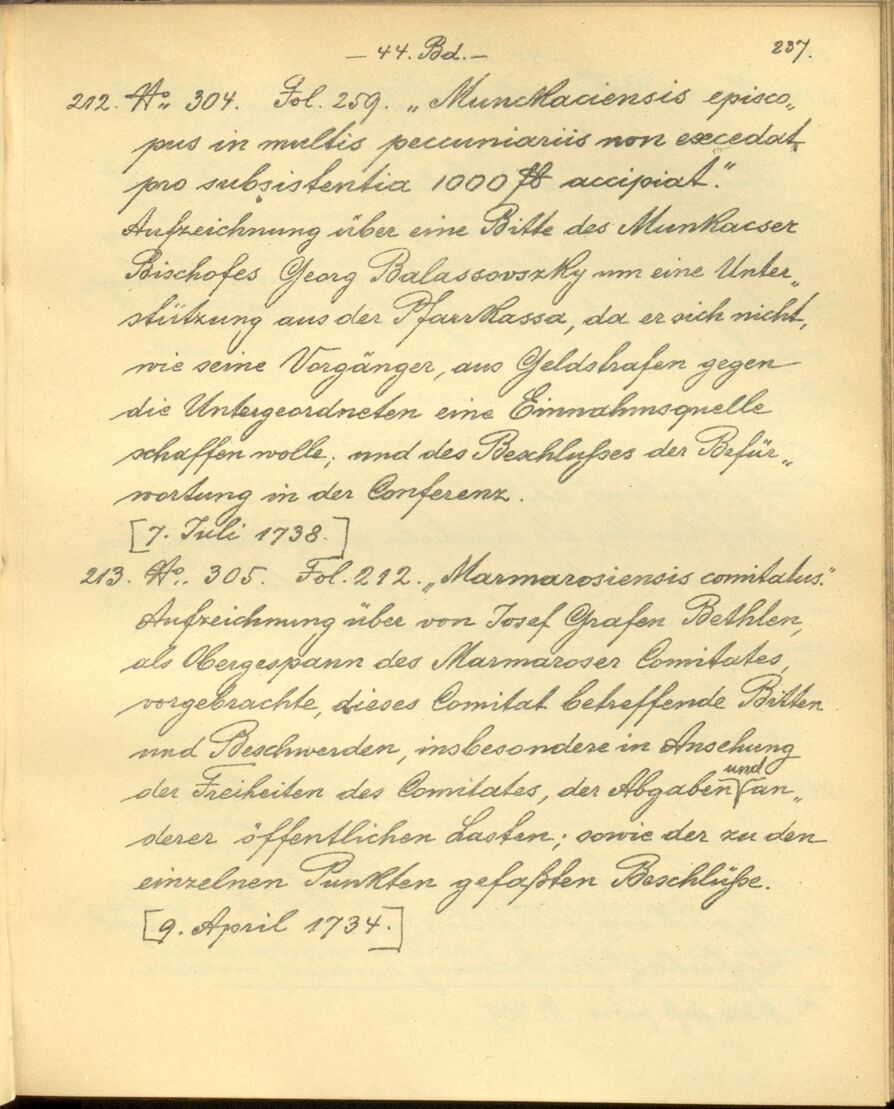 — 44. Bd. — 237.
212. No. 304. Fol. 259. „Munckaciensis episco„
pus in multis peccuniariis non excedat,
pro subsistentia 1000 fl accipiat.“
Aufzeichnung über eine Bitte des Munkacser
Bischofes Georg Balassovszky um eine Unter„
stützung aus der Pfarrkassa, da er sich nicht,
wie seine Vorgänger, aus Geldstrafen gegen
die Untergeordneten eine Einnahmsquelle
schaffen wolle; und des Beschlußes der Befür„
wortung in der Conferenz.
[7. Juli 1738.]
213. No. 305. Fol. 212. „Marmarosiensis comitatus.“
Aufzeichnung über von Josef Grafen Bethlen,
als Obergespann des Marmaroser Comitates,
vorgebrachte, dieses Comitat betreffende Bitten
und Beschwerden, insbesondere in Ansehung
der Freiheiten des Comitates, der Abgaben und an„
derer öffentlichen Lasten; sowie der zu den
einzelnen Punkten gefaßten Beschlüße.
[9. April 1734.]